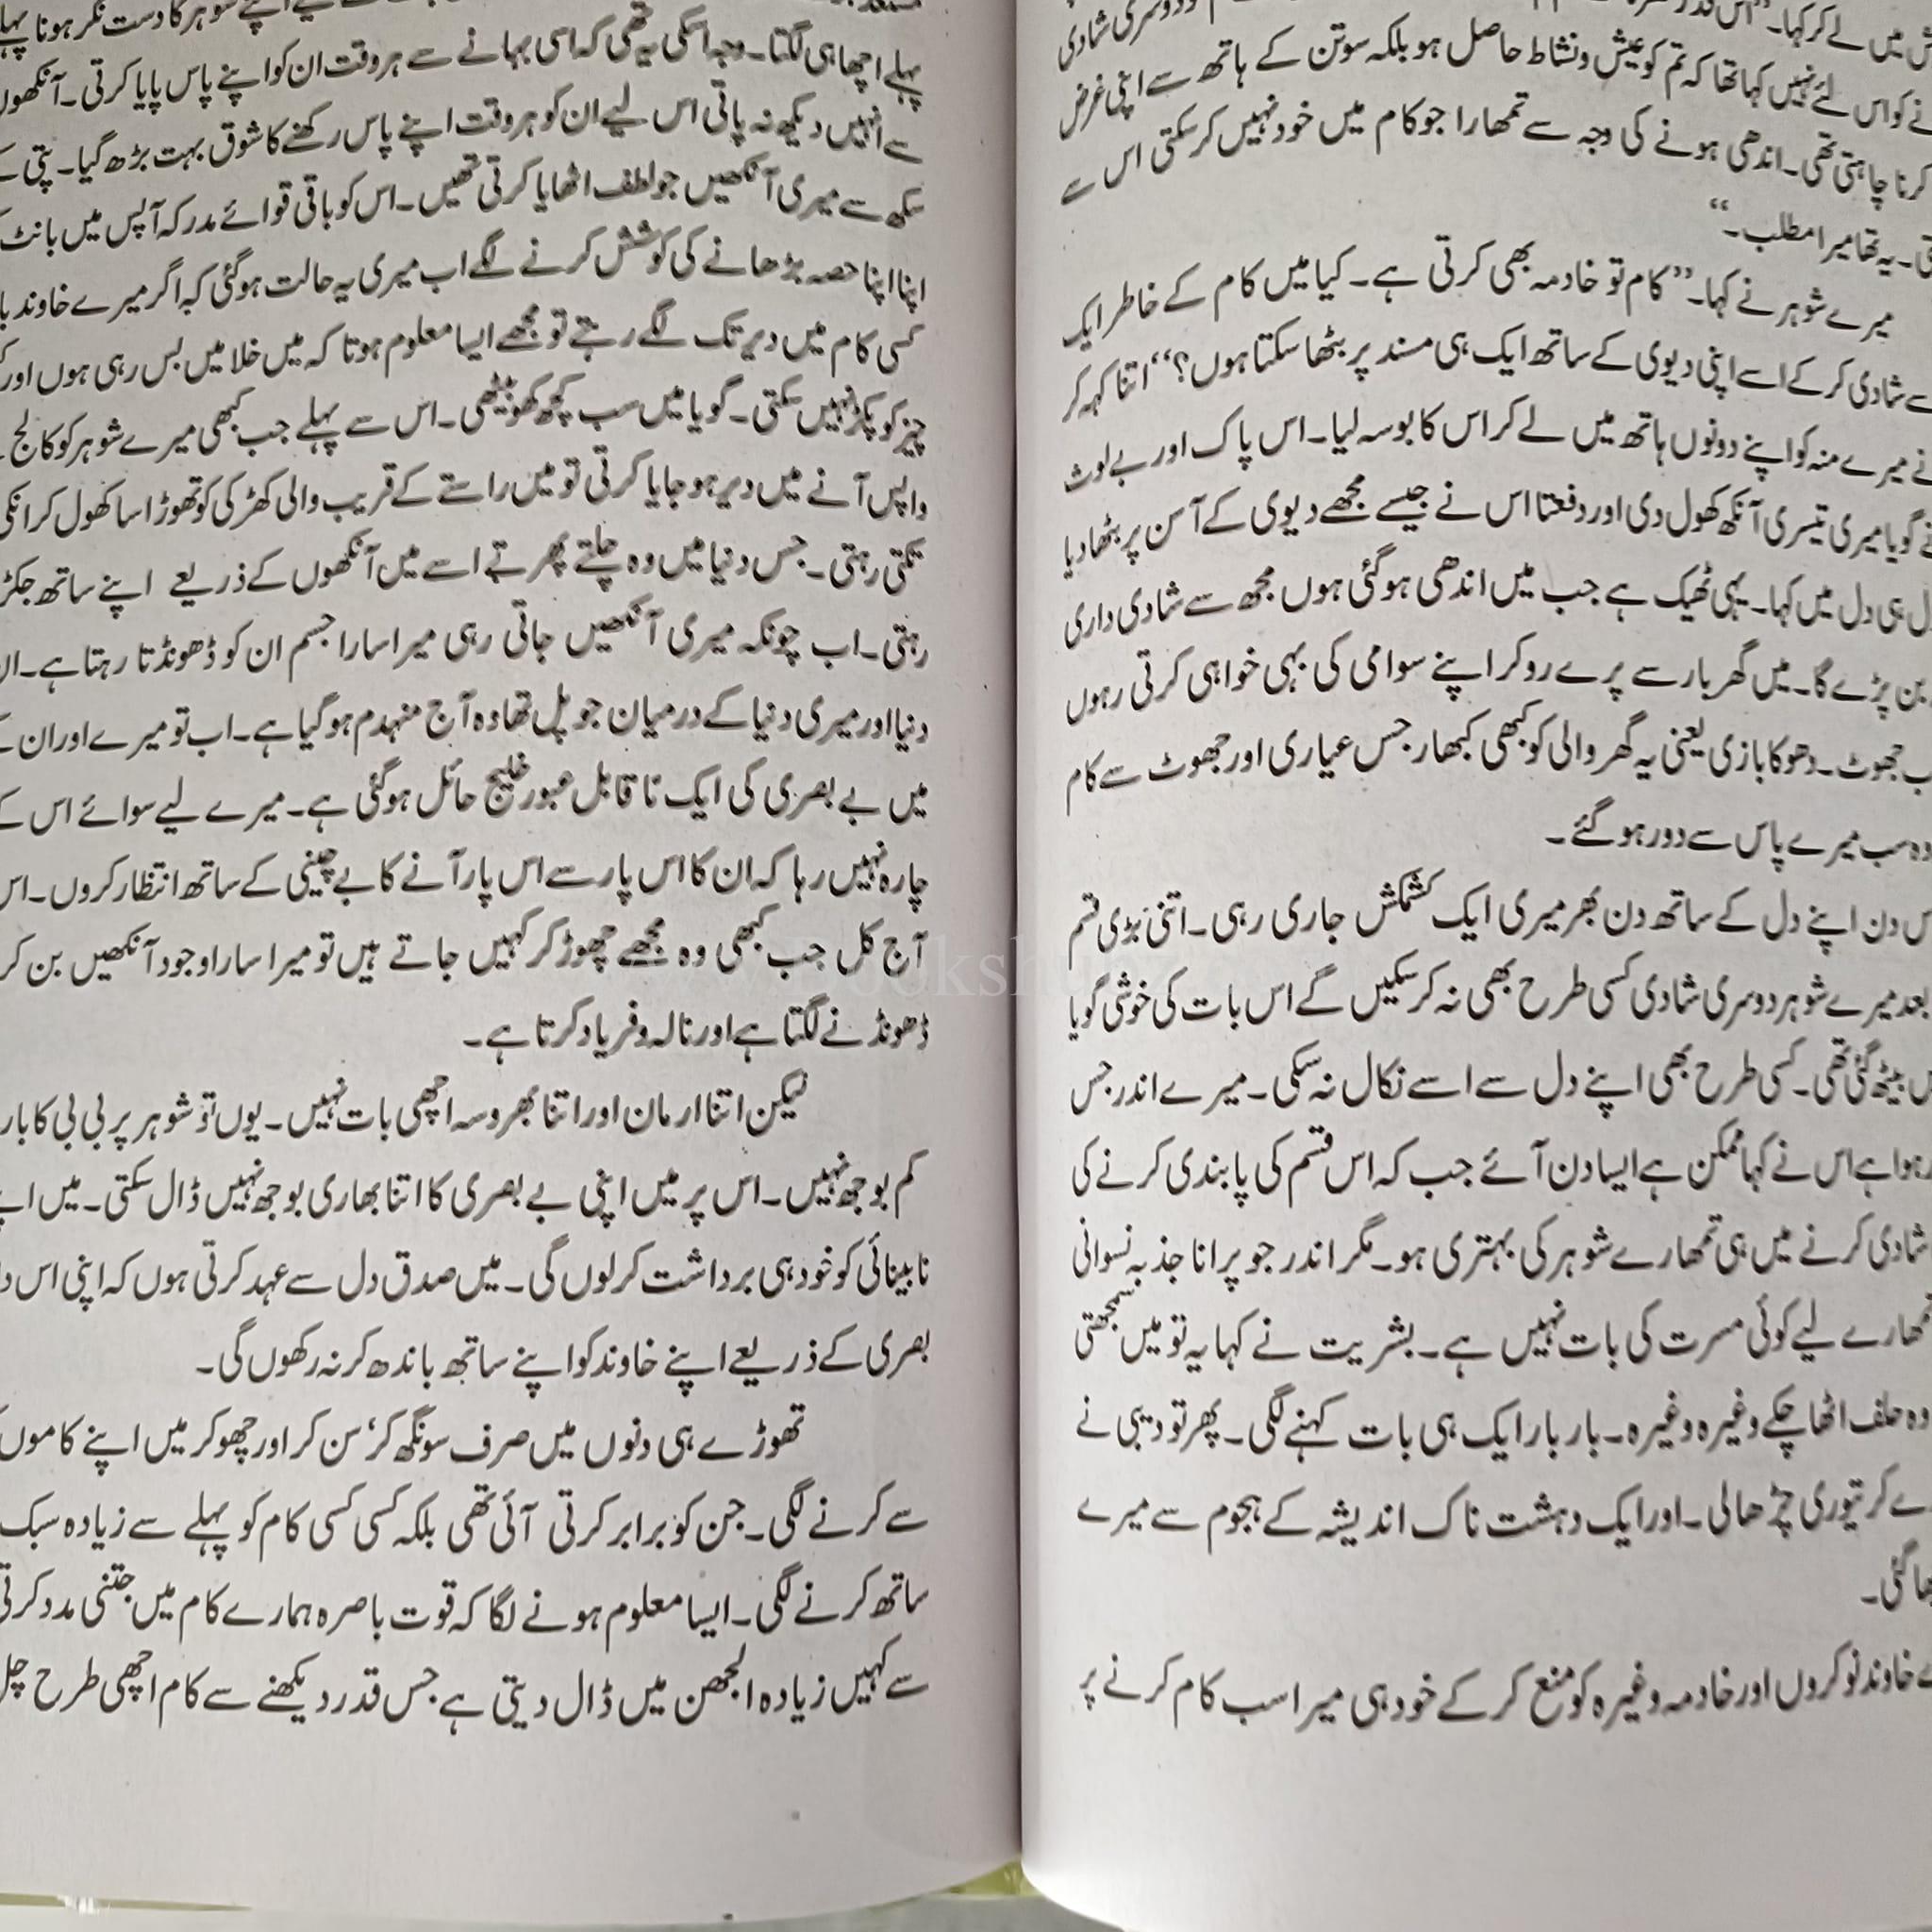 ش میں لے کر کہا۔ ”اس قدر
نے کو اس لئے نہیں کہا تھا کہ تم کو عیش و نشاط حاصل ہو بلکہ سوتن کے ہاتھ سے اپنی غرض
کرنا چاہتی تھی۔ اندھی ہونے کی وجہ سے تمھارا جو کام میں خود نہیں کر سکتی اس سے
تی۔ یہ تھا میرا مطلب۔“
میرے شوہر نے کہا۔ ”کام تو خادمہ بھی کرتی ہے۔ کیا میں کام کے خاطر ایک
سے شادی کر کے اسے اپنی دیوی کے ساتھ ایک ہی مسند پر بٹھا سکتا ہوں؟“ اتنا کہہ کر
نے میرے منہ کو اپنے دونوں ہاتھ میں لے کر اس کا بوسہ لیا۔ اس پاک اور بے لوث
نے گویا میری تیسری آنکھ کھول دی اور دفعتا اس نے جیسے مجھے دیوی کے آسن پر بٹھا دیا
ل ہی دل میں کہا۔ یہی ٹھیک ہے جب میں اندھی ہو گئی ہوں مجھ سے شادی داری
بن پڑے گا۔ میں گھر بار سے پرے رو کر اپنے سوامی کی بہی خواہی کرتی رہوں
ب جھوٹ۔ دھوکا بازی یعنی یہ گھر والی کو کبھی کبھار جس عیاری اور جھوٹ سے کام
وہ سب میرے پاس سے دور ہو گئے۔
س دن اپنے دل کے ساتھ دن بھر میری ایک کشمکش جاری رہی۔ اتنی بڑی قسم
بعد میرے شوہر دوسری شادی کسی طرح بھی نہ کر سکیں گے اس بات کی خوشی گویا
بیٹھ گئی تھی۔ کسی طرح بھی اپنے دل سے اسے نکال نہ سکی۔ میرے اندر جس
ہوا ہے اس نے کہا ممکن ہے ایسا دن آئے جب کہ اس قسم کی پابندی کرنے کی
شادی کرنے میں ہی تمھارے شوہر کی بہتری ہو۔ مگر اندر جو پرانا جذبہ نسوانی
تمھارے لیے کوئی مسرت کی بات نہیں ہے۔ بشریت نے کہا یہ تو میں سمجھتی
وہ حلف اٹھا چکے وغیرہ وغیرہ۔ بار بار ایک ہی بات کہنے لگی۔ پھر تو دیبی نے
ے کر تیوری چڑھا لی۔ اور ایک دہشت ناک اندیشہ کے ہجوم سے میرے
ھا گئی۔
ے خاوند نوکروں اور خادمہ وغیرہ کو منع کر کے خود ہی میرا سب کام کرنے پر
اپنے شوہر کا دست نگر ہونا پہلے
پہلے اچھا ہی لگتا۔ وجہ اسکی یہ تھی کہ اسی بہانے سے ہر وقت ان کو اپنے پاس پایا کرتی۔ آنکھوں
سے انہیں دیکھ نہ پاتی اس لیے ان کو ہر وقت اپنے پاس رکھنے کا شوق بہت بڑھ گیا۔ پتی کے
سکھ سے میری آنکھیں جو لطف اٹھایا کرتی تھیں۔ اس کو باقی قوائے مدرکہ آپس میں بانٹ
اپنا اپنا حصہ بڑھانے کی کوشش کرنے لگے اب میری یہ حالت ہو گئی کہ اگر میرے خاوند
کسی کام میں دیر تک لگے رہتے تو مجھے ایسا معلوم ہوتا کہ میں خلا میں بس رہی ہوں اور
چیز کو پکڑ نہیں سکتی۔ گویا میں سب کچھ کھو بیٹھی۔ اس سے پہلے جب کبھی میرے شوہر کو کالج
واپس آنے میں دیر ہو جایا کرتی تو میں راستے کے قریب والی کھڑکی کو تھوڑا سا کھول کر انکی
تکتی رہتی۔ جس دنیا میں وہ چلتے پھرتے اسے میں آنکھوں کے ذریعے اپنے ساتھ جکڑ
رہتی۔ اب چونکہ میری آنکھیں جاتی رہی میرا سارا جسم ان کو ڈھونڈتا رہتا ہے۔ ان
دنیا اور میری دنیا کے درمیان جو پل تھا وہ آج منہدم ہو گیا ہے۔ اب تو میرے اور ان کے
میں بے بصری کی ایک ناقابل عبور خلیج حائل ہو گئی ہے۔ میرے لیے سوائے اس کے
چارہ نہیں رہا کہ ان کا اس پار سے اس پار آنے کا بے چینی کے ساتھ انتظار کروں۔ اس
آج کل جب کبھی وہ مجھے چھوڑ کر کہیں جاتے ہیں تو میرا سارا وجود آنکھیں بن کر
ڈھونڈنے لگتا ہے اور نالہ و فریاد کرتا ہے۔
لیکن اتنا ارمان اور اتنا بھروسہ اچھی بات نہیں۔ یوں تو شوہر پر بی بی کا بار
کم بوجھ نہیں۔ اس پر میں اپنی بے بصری کا اتنا بھاری بوجھ نہیں ڈال سکتی۔ میں اپنے
نابینائی کو خود ہی برداشت کر لوں گی۔ میں صدق دل سے عہد کرتی ہوں کہ اپنی اس
بصری کے ذریعے اپنے خاوند کو اپنے ساتھ باندھ کر نہ رکھوں گی۔
تھوڑے ہی دنوں میں صرف سونگھ کر‘ سن کر اور چھو کر میں اپنے کاموں
سے کرنے لگی۔ جن کو برابر کرتی آئی تھی بلکہ کسی کسی کام کو پہلے سے زیادہ سبک
ساتھ کرنے لگی۔ ایسا معلوم ہونے لگا کہ قوت باصرہ ہمارے کام میں جتنی مدد کرتی
سے کہیں زیادہ الجھن میں ڈال دیتی ہے جس قدر دیکھنے سے کام اچھی طرح چل